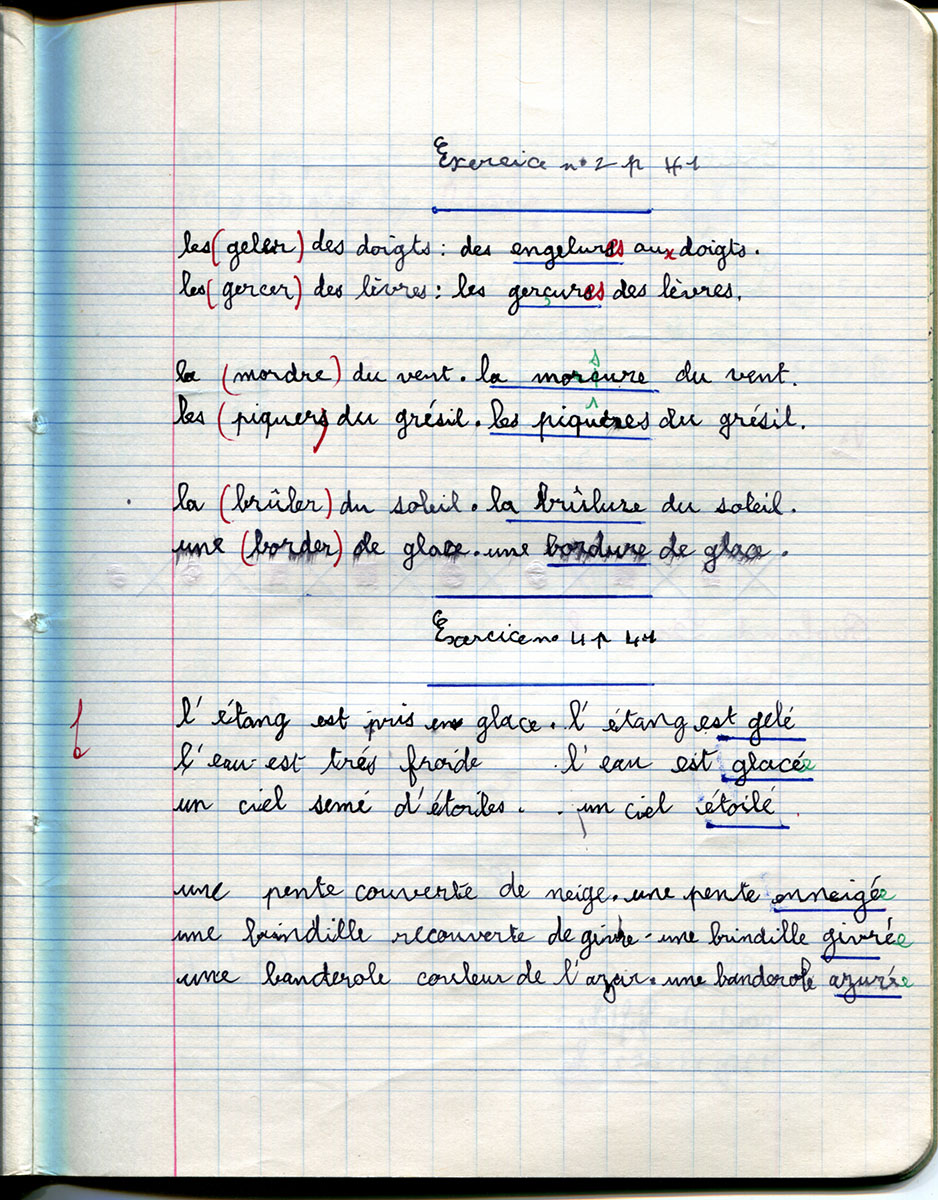 Exercice n° 2 p 41
les (geler) des doigts : des engelures aux doigts.
les (gercer) des lèvres : les gerçures des lèvres.
la (mordre) du vent. la morsure du vent.
les (piquer) du grésil. les piqûres du grésil.
la (brûler) du soleil. la brûlure du soleil.
une (border) de glace. une bordure de glace.
Exercice n° 4 p 41
l'étang est pris en glace. l'étang est gelé
l'eau est trés froide . l'eau est glacée
un ciel semé d'étoiles. . un ciel étoilé
une pente couverte de neige. une pente enneigée
une brindille recouverte de givre - une brindille givrée
une banderole couleur de l'azur. une banderole azurée